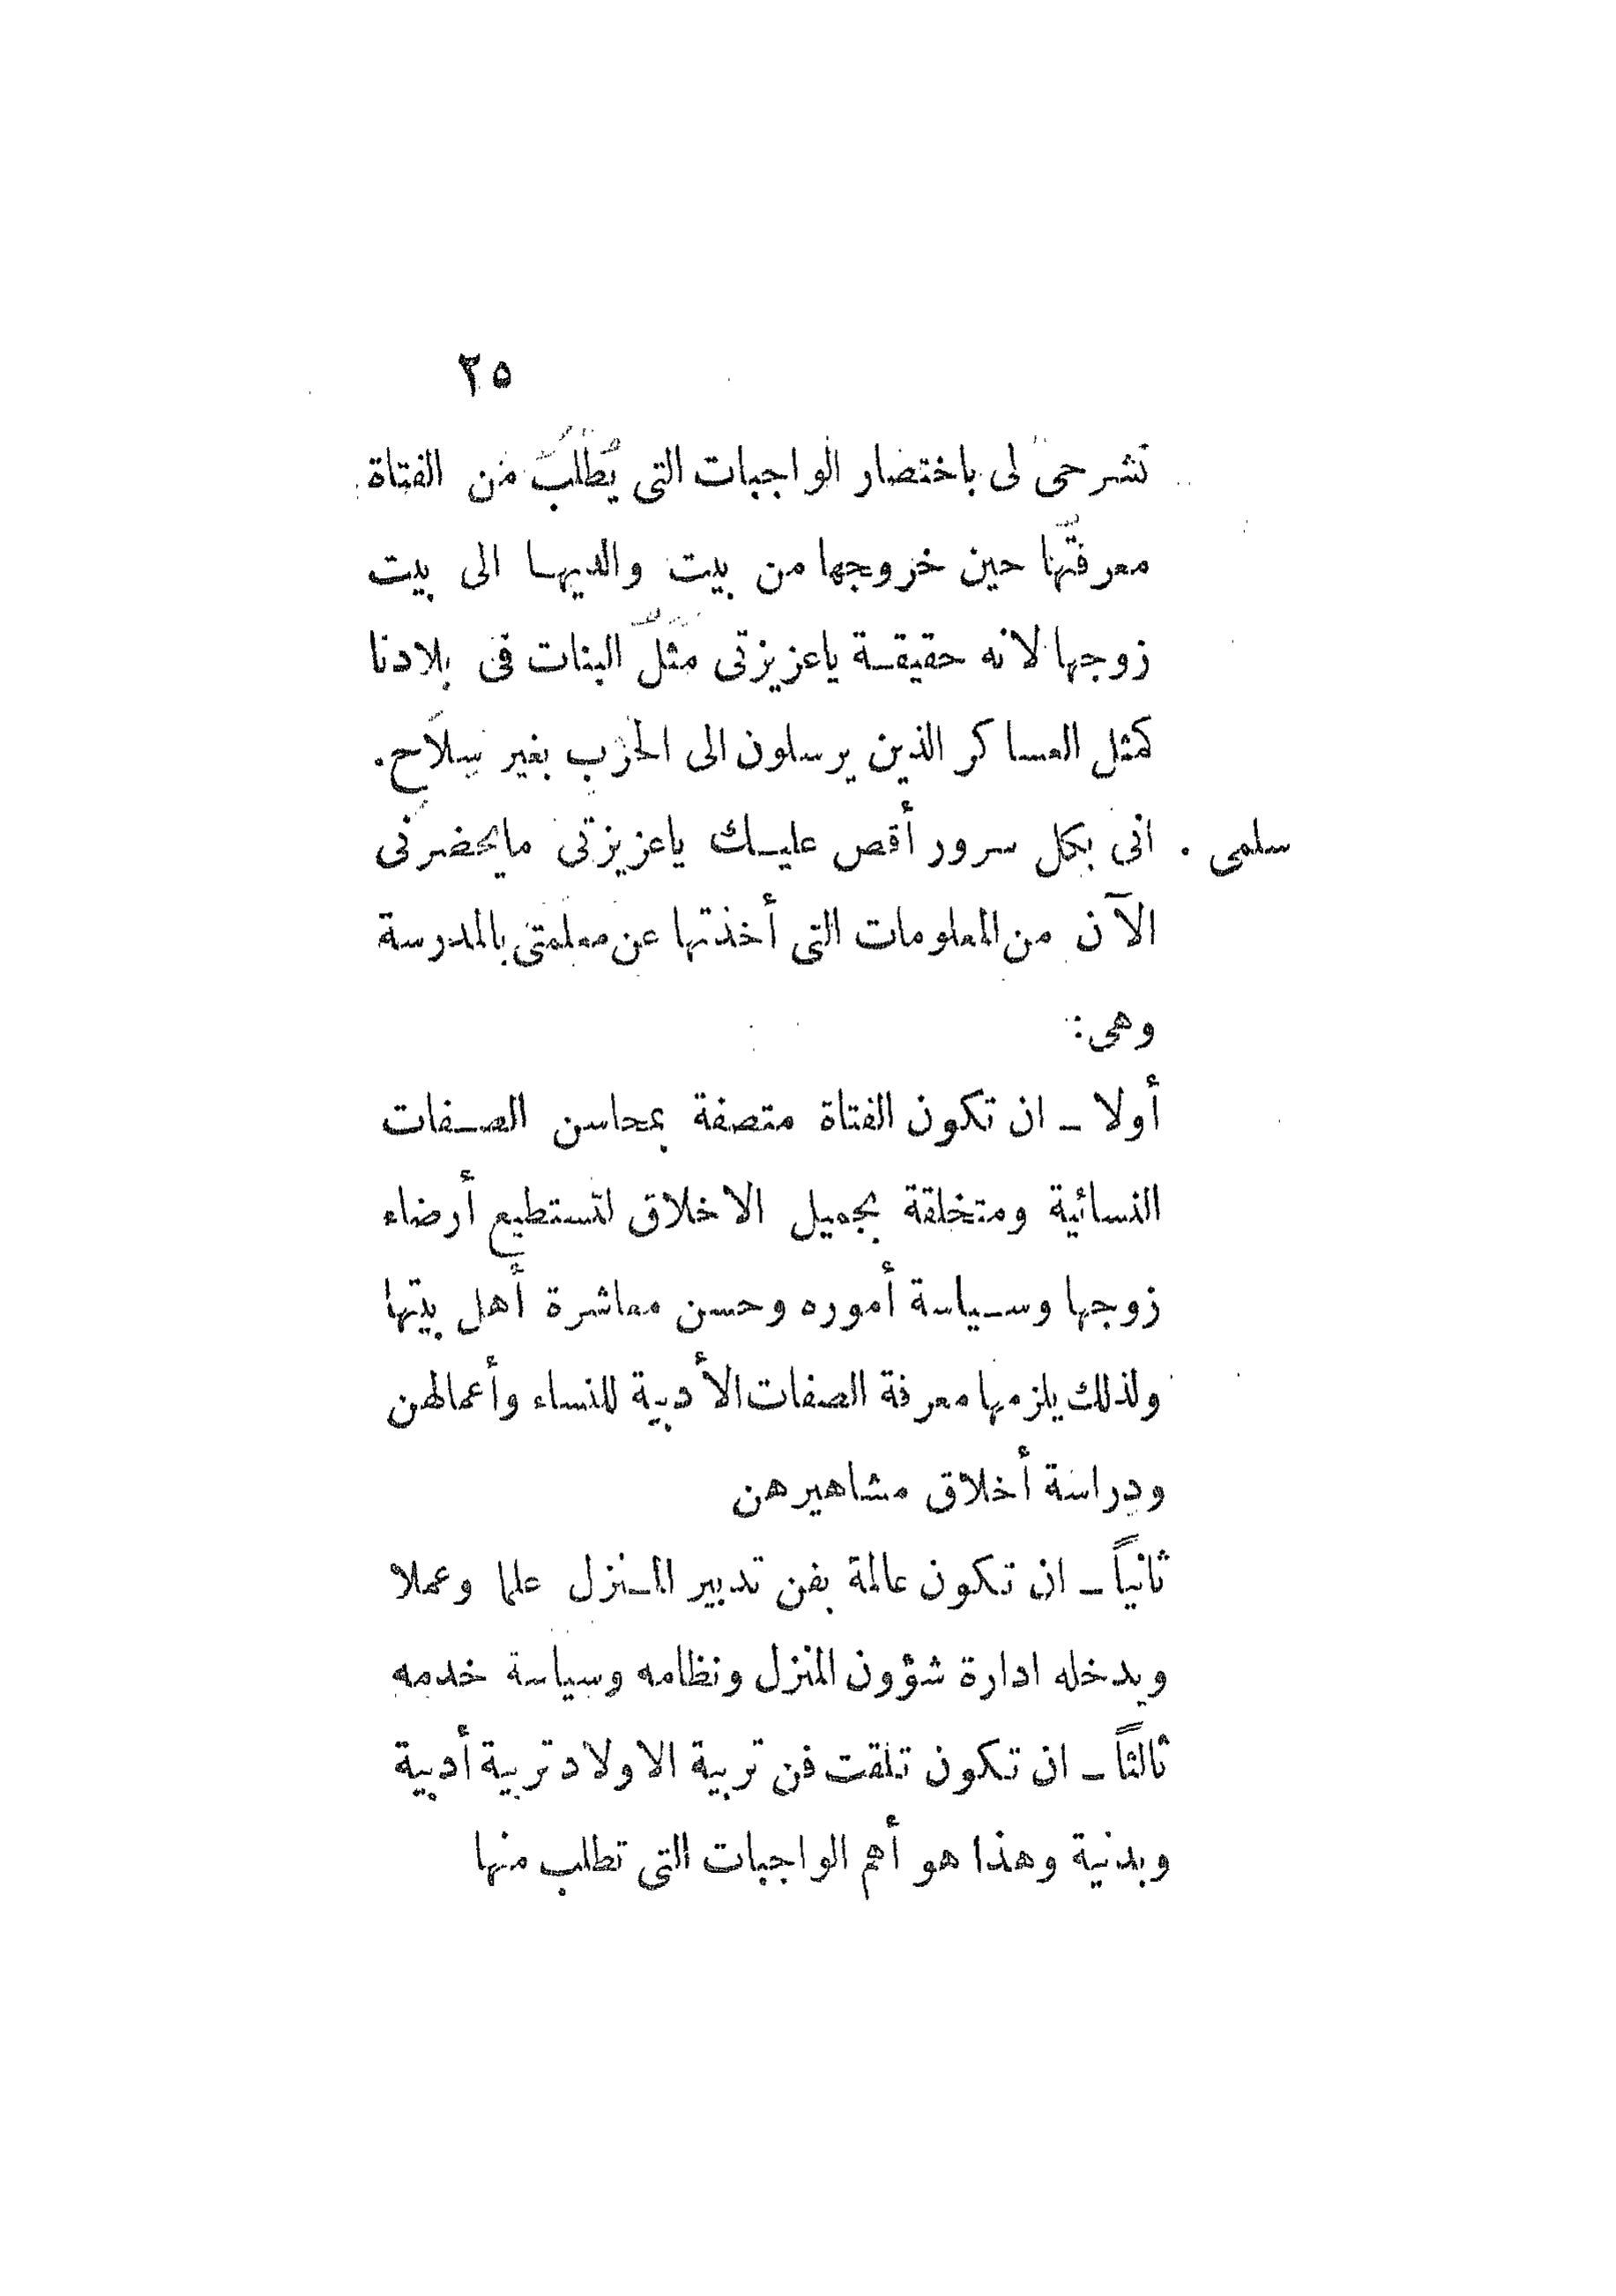 ٢٥
تشرحى لى باختصار الواجبات التى يُطلب من الفتاة
معرفتها حين خروجها من بيت والديها الى بيت
زوجها لانه حقيقة ياعزيزتى مثل البنات فى بلادنا
كمثل العساكر الذين يرسلون الى الحرب بغير سلاح.
سلمى . انى بكل سرور أقص عليك ياعزيزتى مايحضرنى
الآن من المعلومات التى أخذتها عن معلمتى بالمدرسة
وهى:
أولا ـ ان تكون الفتاة متصفة بمحاسن الصفات
النسائية ومتخلقة بجميل الاخلاق لتستطيع أرضاء
زوجها وسياسة أموره وحسن معاشرة أهل بيتها
ولذلك يلزمها معرفة الصفات الأدبية للنساء وأعمالهن
ودراسة أخلاق مشاهيرهن
ثانياً ـ ان تكون عالمة بفن تدبير المنزل علما وعملا
ويدخله ادارة شؤون المنزل ونظامه وسياسة خدمه
ثالثاً ـ ان تكون تلقت فن تربية الاولاد تربية أدبية
وبدنية وهذا هو أهم الواجبات التى تطلب منها